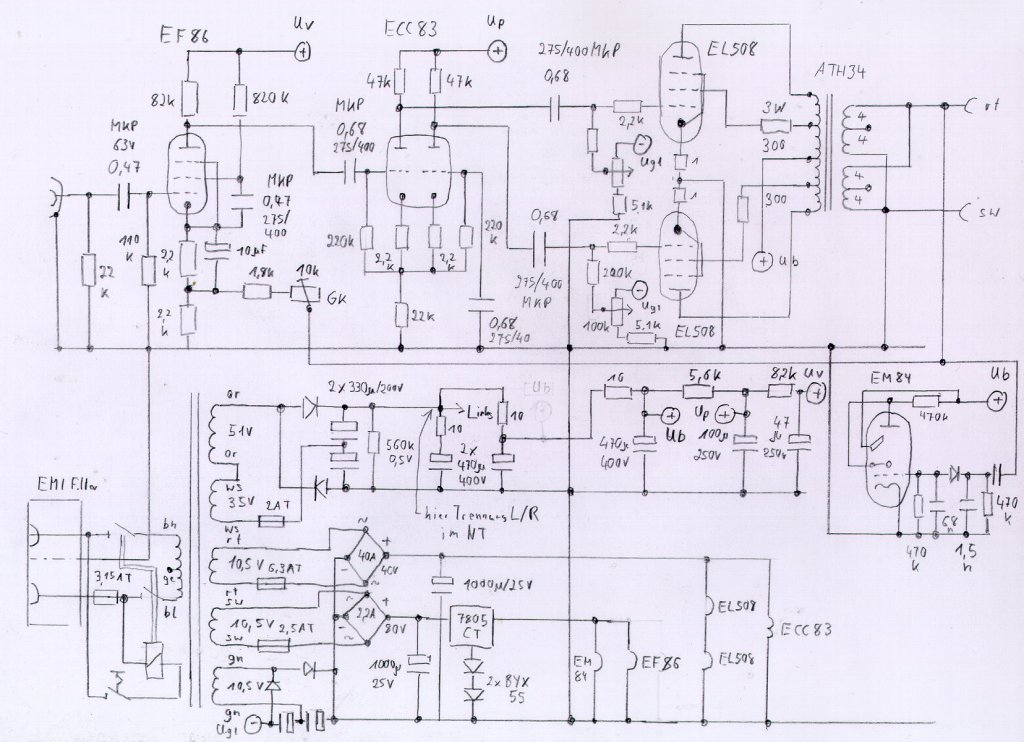 EF86
Uv
ECC83
Up
275/400 MKP
EL508
ATH34
82k
820k
47k
47k
0,68
MKP
63V
0,47
MKP
0,68
275/400
2,2k
3W
300
rt
4
4
Ug1
1
1
MKP
0,47
275/
400
110
k
2,2
k
10µF
220k
2,2
k
2,2
k
220
k
0,68
5,1k
2,2k
300
4
4
sw
22
k
1,8k
10k
GK
275/400
MKP
200k
Ub
Ug1
2,2
k
22k
0,68
275/40
100k
5,1k
EL508
or
2x330µ/200V
Links
10
10
Ub
10
5,6k
8,2k
Uv
EM84
Ub
51V
560k
0,5V
2x
470µ
400V
Ub
Up
470k
or
470µ
400V
100µ
250V
47
µ
250V
EMI Filter
ws
35V
2AT
ws
hier Trennung L/R
im NT
470
k
68
n
1,5
n
470
k
bn
rt
10,5V
6,3AT
rt
40A
40V
~
~
+
-
3,15AT
ge
bl
1000µ/25V
sw
10,5V
2,5AT
sw
2,2A
80V
~
~
+
-
7805
CT
EL508
ECC83
gn
10,5V
gn
Ug1
1000µ
25V
2x BYX
55
EM
84
EF86
EL508